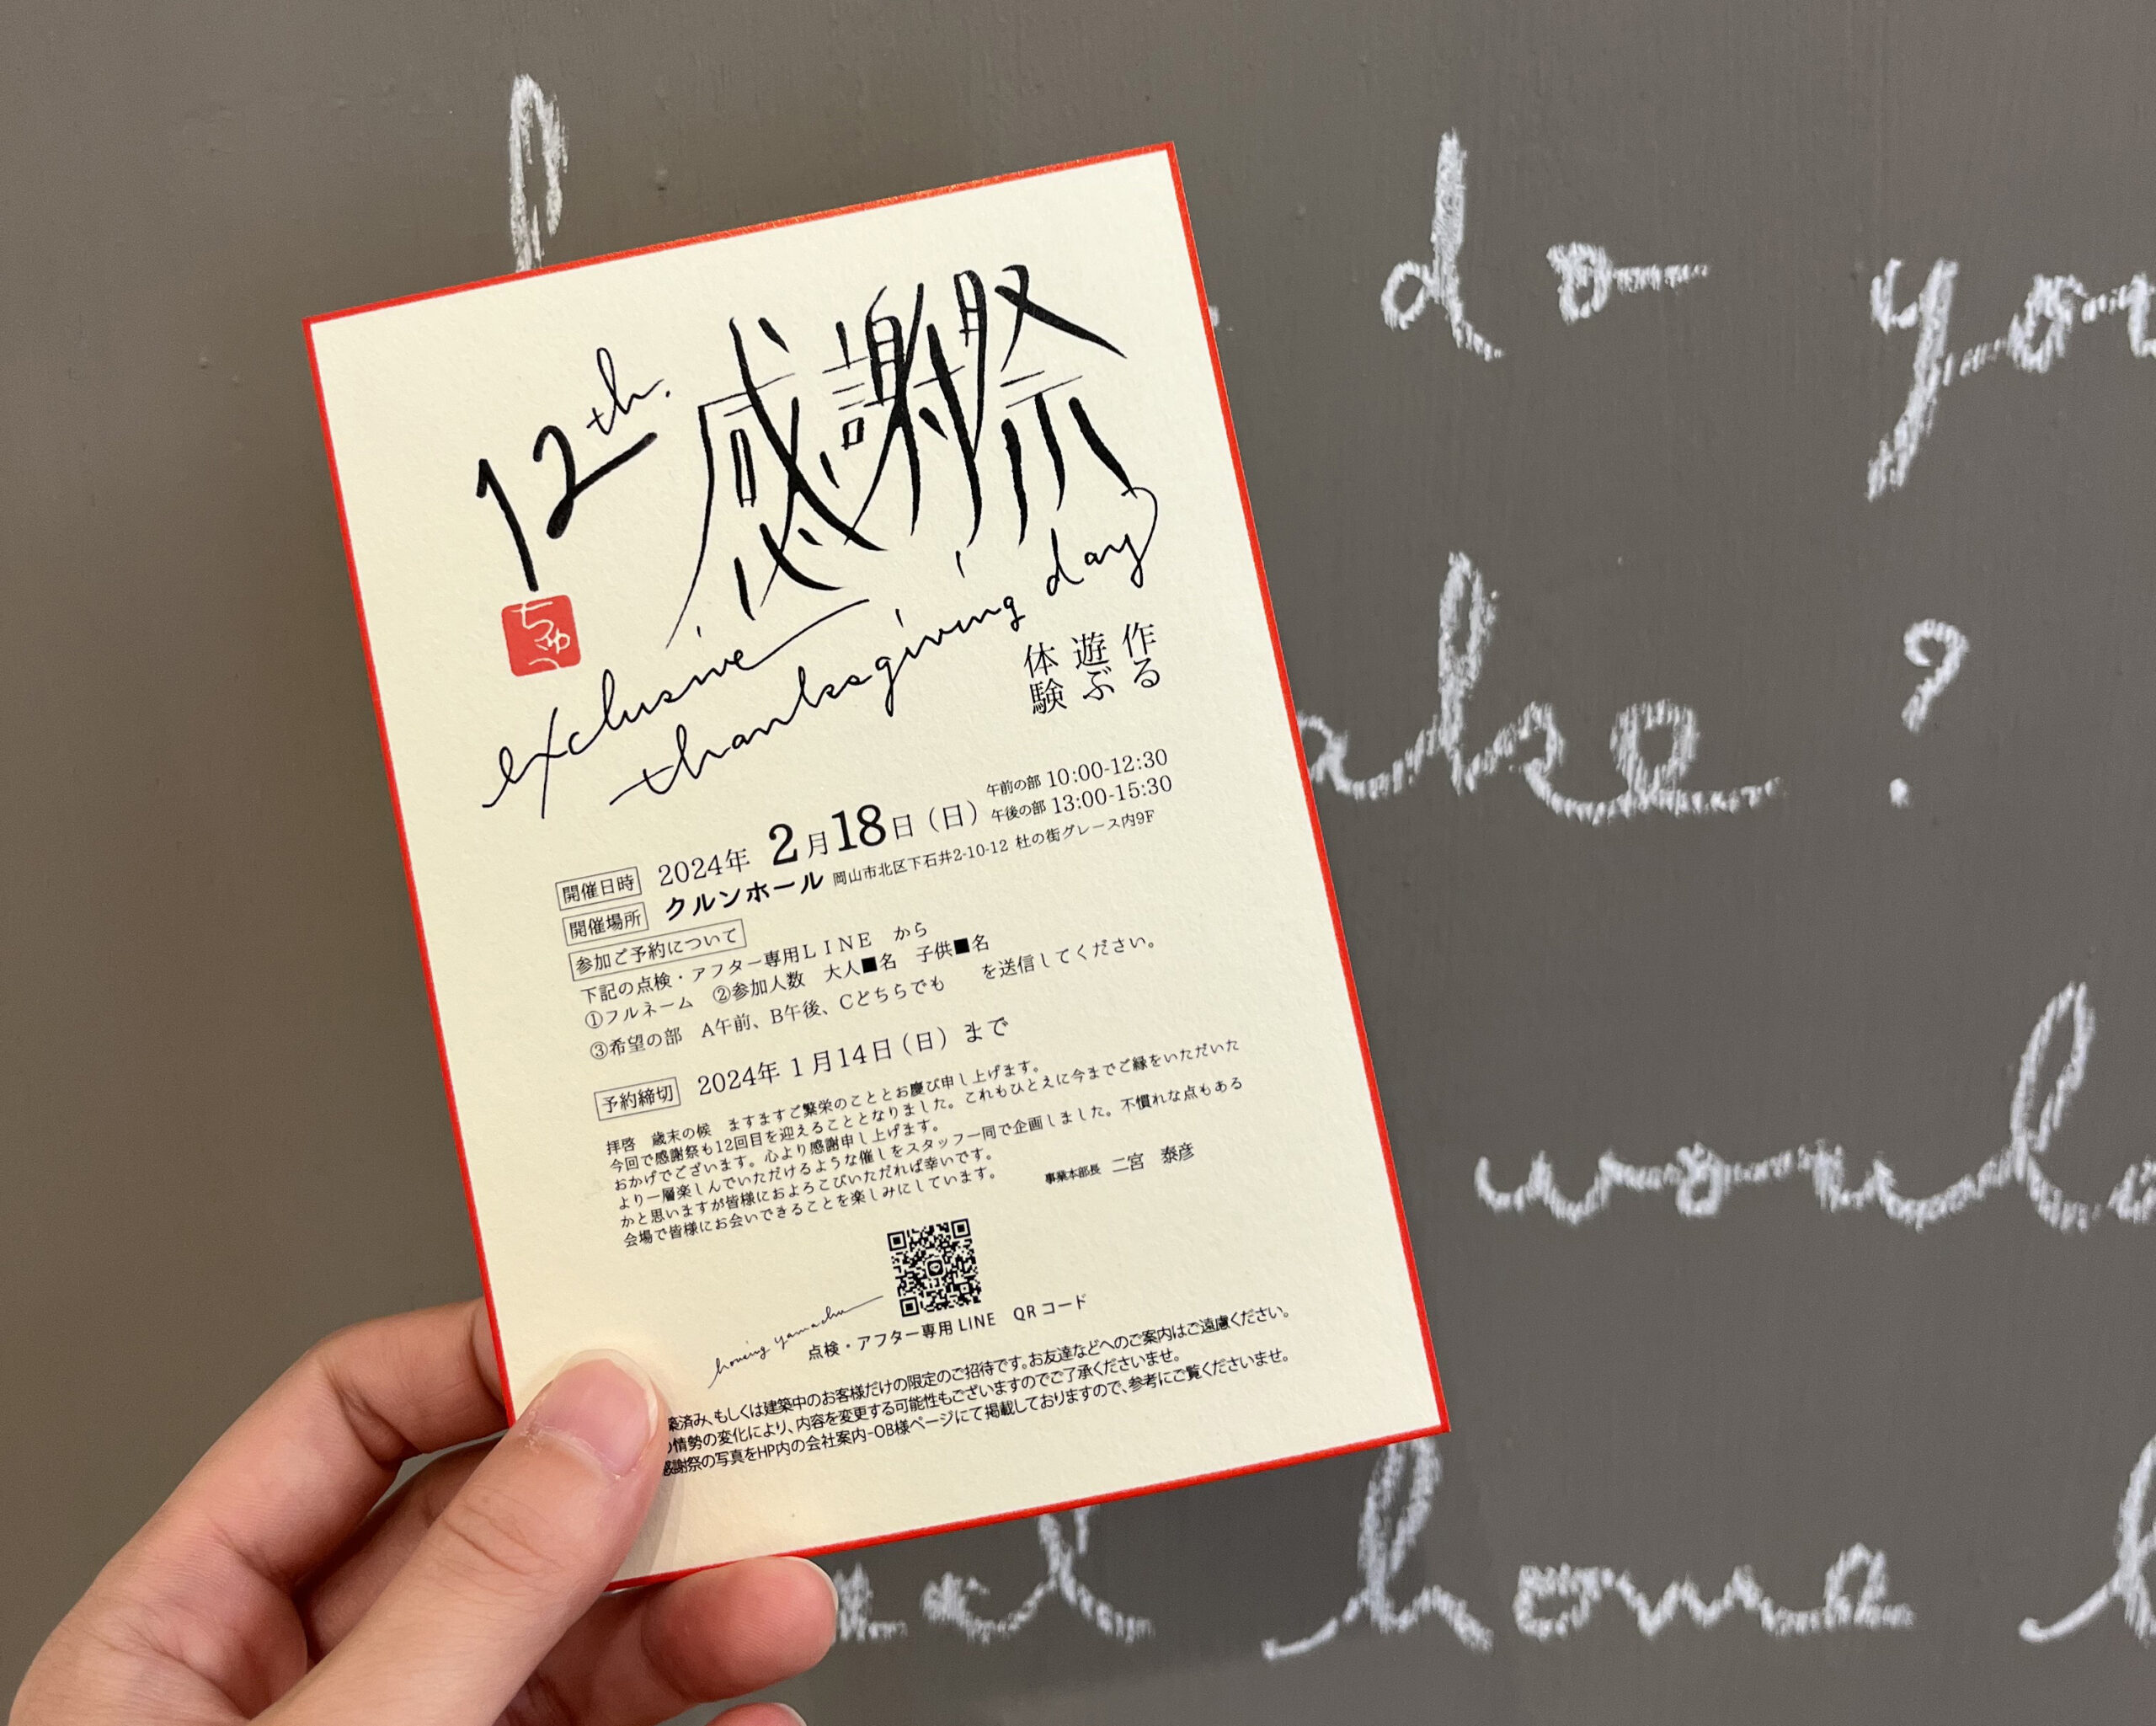 12th. 感謝祭
ちゅう
exclusive
thanksgiving day
作る
遊ぶ
体験
開催日時 2024年 2月18日（日） 午前の部 10:00-12:30
午後の部 13:00-15:30
開催場所 クルンホール 岡山市北区下石井2-10-12 杜の街グレース内9F
参加ご予約について
下記の点検・アフター専用LINE から
①フルネーム ②参加人数 大人■名 子供■名
③希望の部 A午前、B午後、Cどちらでも を送信してください。
予約締切 2024年 1月14日（日）まで
拝啓 歳末の候 ますますご繁栄のこととお慶び申し上げます。
今回で感謝祭も12回目を迎えることとなりました。これもひとえに今までご縁をいただいた
おかげでございます。心より感謝申し上げます。
より一層楽しんでいただけるような催しをスタッフ一同で企画しました。不慣れな点もある
かと思いますが皆様におよろこびいただれば幸いです。
会場で皆様にお会いできることを楽しみにしています。
事業本部長 二宮 泰彦
housing yamachu
点検・アフター専用 LINE QRコード
築済み、もしくは建築中のお客様だけの限定のご招待です。お友達などへのご案内はご遠慮ください。
情勢の変化により、内容を変更する可能性もございますのでご了承くださいませ。
感謝祭の写真をHP内の会社案内-OB様ページにて掲載しておりますので、参考にご覧くださいませ。
do you
?
would
home